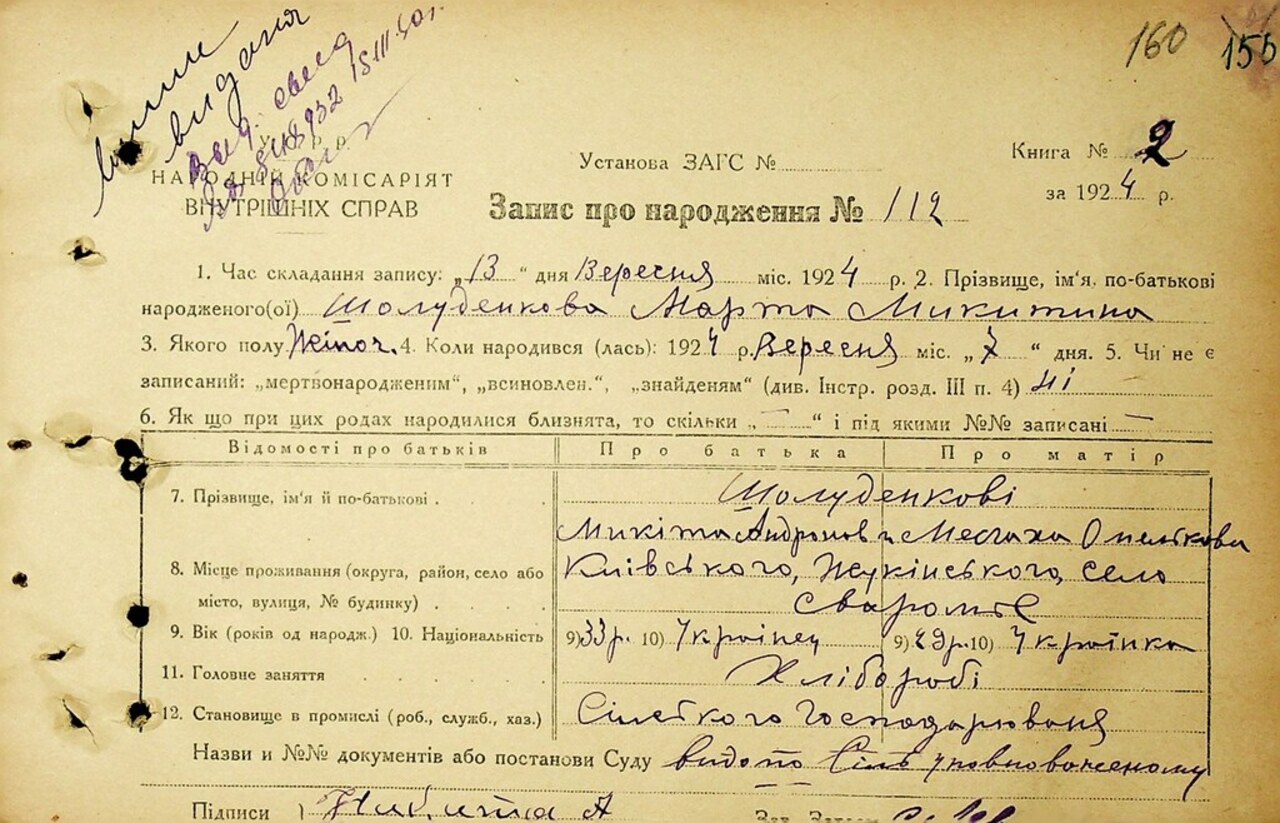 160 155
видана
У. С. Р. Р.
НАРОДНІЙ КОМІСАРІЯТ
ВНУТРІШНІХ СПРАВ
Установа ЗАГС №
Книга № 2
за 1924 р.
Запис про народження № 112
1. Час складання запису: „13“ дня Вересня міс. 1924 р. 2. Прізвище, ім'я, по-батькові
народженого(ої) Шолуденкова Марта Микитина
3. Якого полу Жіноч. 4. Коли народився (лась): 1924 р. Вересня міс. „7“ дня. 5. Чи не є
записаний: „мертвонародженим“, „всиновлен.“, „знайденям“ (див. Інстр. розд. III п. 4) ні
6. Як що при цих родах народилися близнята, то скільки „—“ і під якими №№ записані —
Відомості про батьків Про батька Про матір
7. Прізвище, ім'я й по-батькові . . Шолуденкові
Микіта Андронов
8. Місце проживання (округа, район, село або Київського, Жукінського, село
місто, вулиця, № будинку) . . . Сваромье
9. Вік (років од народж.) 10. Національність 9) 33 р. 10) Українец 9) 29 р. 10) Українка
11. Головне заняття . . . . . Хлібороби
12. Становище в промислі (роб., служб., хаз.) Сільского Господарюваня
Назви и №№ документів або постанови Суду видано Сіль уповноваженому
Підписи